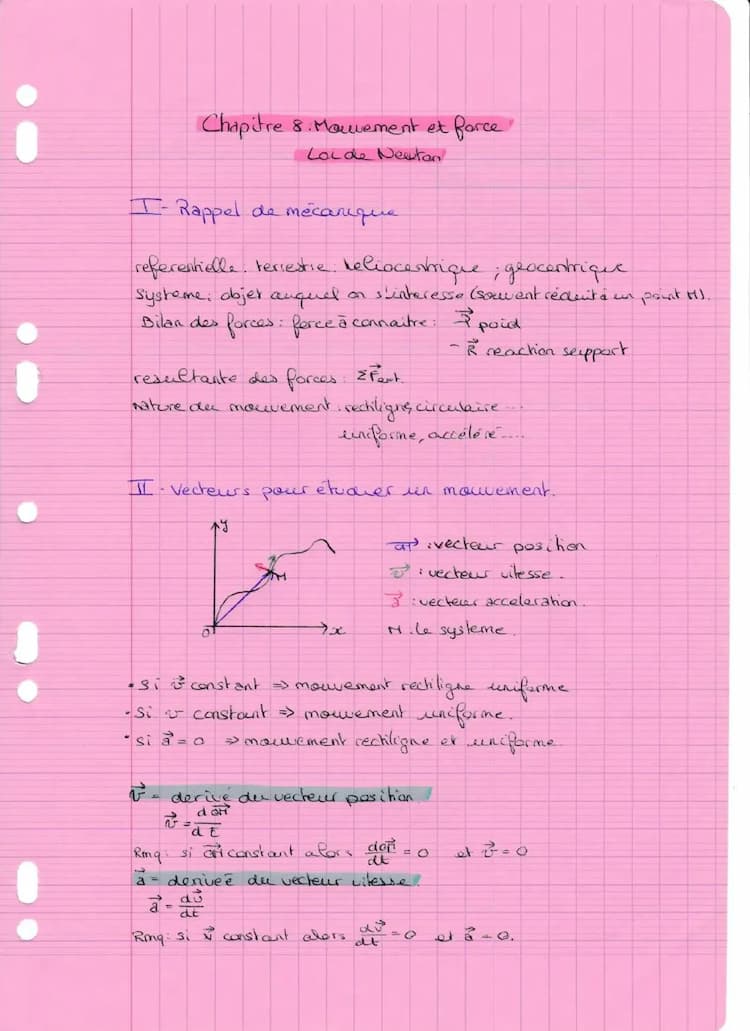 Chapitre 8. Mouvement et force
Loi de Newton
I - Rappel de mécanique
referentielle : terrestre, heliocentrique, geocentrique
Systeme : objet auquel on s'interesse (souvent réduit à un point M).
Bilan des forces : force à connaitre : - P⃗ poid
- R⃗ reaction support
resultante des forces : ΣF⃗ext.
Nature du mouvement : rectiligne, circulaire ...
uniforme, accéléré ....
II - Vecteurs pour étudier un mouvement.
y
M
O
x
OM⃗ : vecteur position
v⃗ : vecteur vitesse.
a⃗ : vecteur acceleration.
M : le systeme.
• Si v⃗ constant => mouvement rectiligne uniforme
• Si v constant => mouvement uniforme.
• Si a⃗ = 0 => mouvement rectiligne et uniforme.
v⃗ = derivé du vecteur position
v⃗ = dOM⃗/dt
Rmq : si OM⃗ constant alors dOM⃗/dt = 0 et v⃗ = 0
a⃗ = deriveé du vecteur vitesse.
a⃗ = dv⃗/dt
Rmq : si v⃗ constant alors dv⃗/dt = 0 et a⃗ = 0.